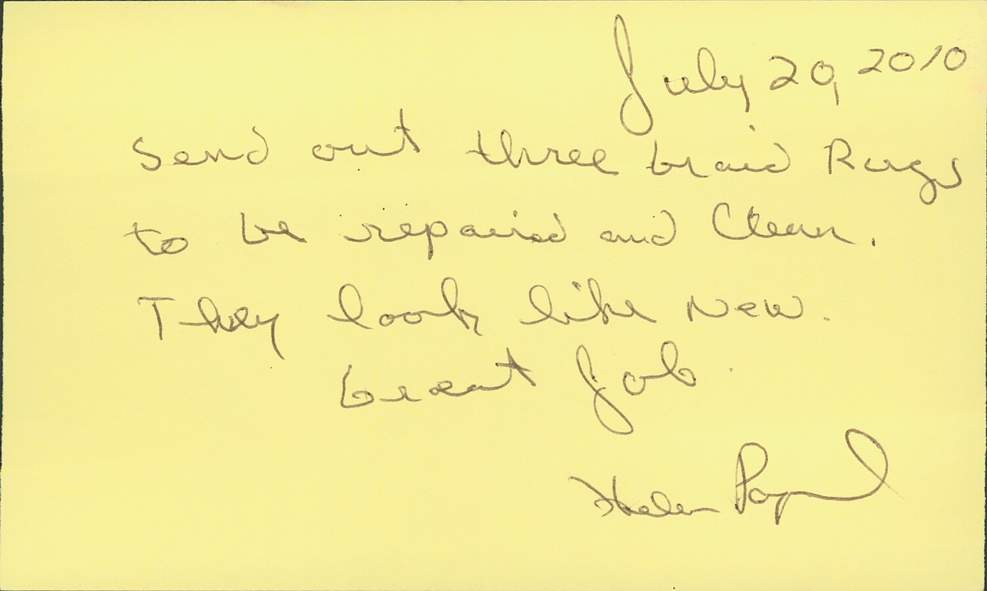 July 20, 2010
Send out three braid Rugs
to be repaired and Clean.
They look like New.
Great Job.
Helen